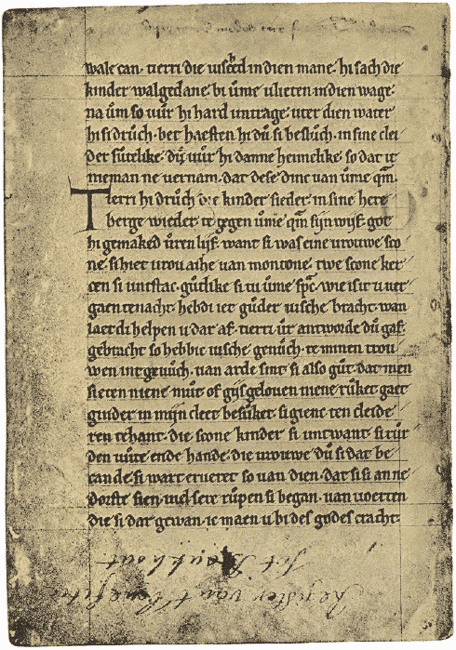 wale can· tierri die visced in dien mane· hi sach die
kinder walgedane· bi ūme vlieten in dien wage·
na ūm so vůr hi hard untrage· uter dien water
hi si drůch· bet haesten hi dů si beslůch· in sine clei
der sůtelike· dů vůr hi danne heimelike· so dat it
nieman ne vernam· dat dese dinc van ūme qm̄·
Tierri hi drůch die kinder sieder in sine here
berge wieder te gegen ūme qm̄ sijn wijf· got
hi gemaked ůren lijf· want si was eine vrouwe sco
ne· si hiet vrou aihe van montone· twe scone ker
cen si untstac· gůtlike si tu ūme sp̄c· wie is it u ver
gaen tenacht hebdi iet gůder vische bracht· wan
laet di helpen u dar af· tierri ůr antworde dů gaf·
gebracht so hebbic vische genůch· te minen trou
wen int gevůch· van arde sint si also gůt· dat men
si eten niene můt· of gijs geloven niene růket gaet
ginder in mijn cleet besůket· si gienc ten cleide
ren tehant· die scone kinder si untwant· si růr
den vůte ende hande· die vrouwe dů si dat be
cande· si wart erveret so van dien· dat si si anne
dorste sien· wel sere růpen si began· van worten
die si dar gewan· ic maen u bi des godes cracht·
Register vant
tot